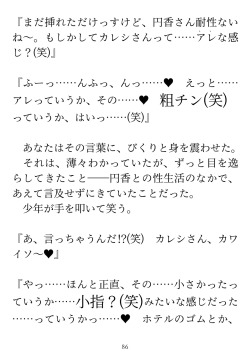 『まだ挿れただけっすけど、円香さん耐性ない
ね〜。もしかしてカレシさんって……アレな感
じ？(笑)』
『ふーっ……んふっ、んっ……♥　えっと……
アレっていうか、その……♥　粗チン(笑)
っていうか、はいっ……(笑)』
あなたはその言葉に、びくりと身を震わせた。
それは、薄々わかっていたが、ずっと目を逸
らしてきたこと――円香との性生活のなかで、
あえて言及せずにきていたことだった。
少年が手を叩いて笑う。
『あ、言っちゃうんだ!?(笑)　カレシさん、カワ
イソ〜♥』
『やっ……ほんと正直、その……小さかったっ
ていうか……小指？(笑)みたいな感じだった
……っていうかっ……♥　ホテルのゴムとか、
86